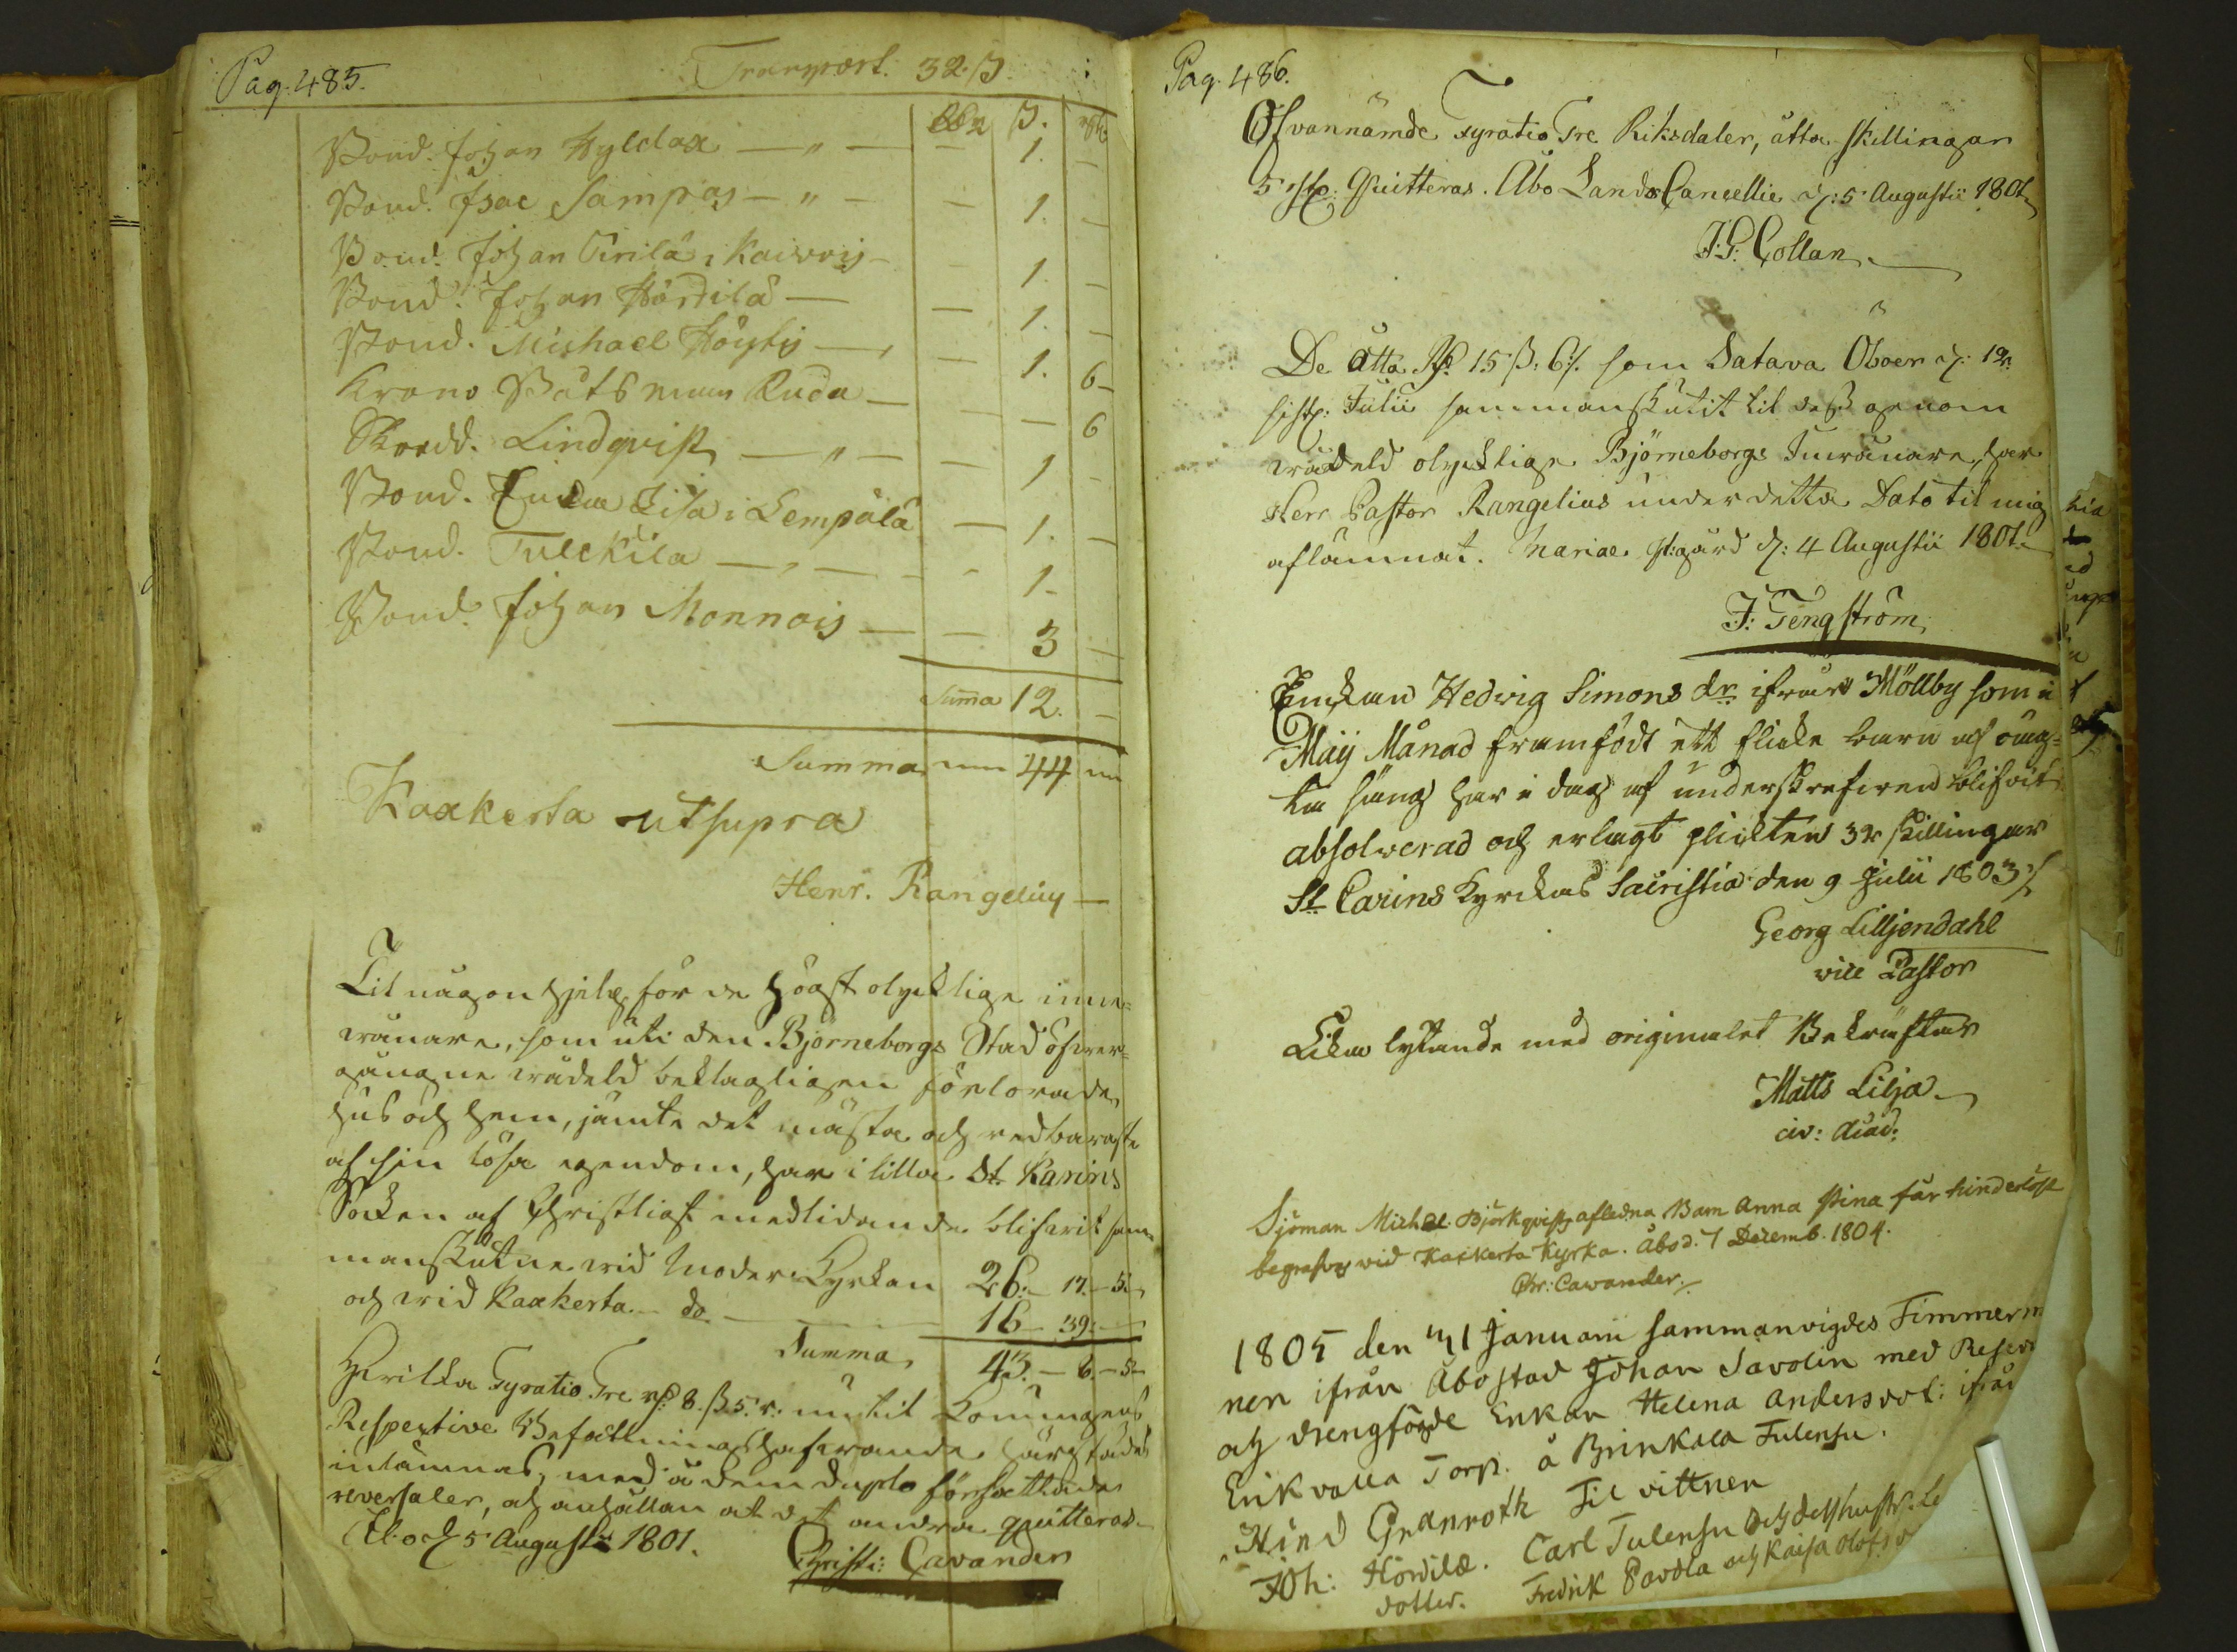 Pag. 485.
Transport. 32. ß.
ß.
Bond. Johan Kyldax — " — — 1. —
Bond. Isac Sampas — " — — 1. —
Bond. Johan Pirilä i Kaisvois — — 1. —
Bond. Johan Hördilä — — 1. —
Bond. Michael Höytis — — 1. 6
Krono Båtsman Ruda — — 6
Skredd. Lindqvist — " — — 1 —
Bond. Enka Lisa i Lempälä — 1. —
Bond. Tulckila — " — — 1.
Bond. Johan Monnois — — 3 —
Summa 12. —
Summa 44
Kaxkerta ut supra
Henr. Rangelius
Til någon hjelp för de högst olycklige inne-
vånare, som uti den Björneborgs Stad öfver-
gångne vådeld beklagligen förlorade
hus och hem, jämte det mästa och redbaraste
af sin lösa egendom, har i lilla St. Karins
Socken af Christligt medlidande blifvit sam-
manskutne vid Moder Kyrkan 26. — 17. — 5.
och vid Kaxkerta do. — 16 — 39. —
Summa 43. — 6. — 5 —
Hvilka Fyratio Tre 8. ß 5. r. nu til Konungens
Respective Befallningshafvande härstädes
inlämnas, med å dem duplo författade
reversaler, och anhållan at det andra quitteras.
Åbo d. 5 Augusti 1801.
Christ: Cavander
Pag. 486.
Ofvannämde Fyratio Tre Riksdaler, åtta skillingar
5 Quitteras. Åbo Lands Cancellie d: 5 Augustii 1801
J: G: Collan
De Åtta Rd. 15 ß. 6 som Satava Öboer d: 12
sistl. Julii sammanskutit til dess genom
vådeld olycklige Björneborgs Invånare, har
Herr Pastor Rangelius under detta Dato til mig
aflämnat. Mariae Pr:gård d: 4 Augustii 1801.
J: Tengström
Enckan Hedvig Simons dr. ifrån Möllby som i
Maij Månad framfödt ett flicke barn af oäg-
ta säng har i dag af underskrefven blifvit
absolverad och erlagt plickten 32 skillingar
St Carins Kyrckas Sacristia den 9 Julii 1803
Georg Lilljendahl
vice Pastor
Lika lytande med originalet Bekräftar
Matts Lilja
civ: Acad:
Sjöman Michel Björkqvists afledna Barn Anna Stina får hinderlöst
begrafvas vid Kaxkerta Kyrka. Åbo d. 7 Decemb. 1804.
Chr: Cavander.
1805 den 1 Januarii sammanvigdes Timmerm
nen ifrån Åbo stad Johan Savolin med
och drengfogde Enkan Helena andersdot: ifrån
Erikvalla Torp. å Brinkala
Granroth Til vittnen
Joh: Hördilä. Carl Och dess hustr.
dotter. Fredrik Pavola och Kaisa Olofs